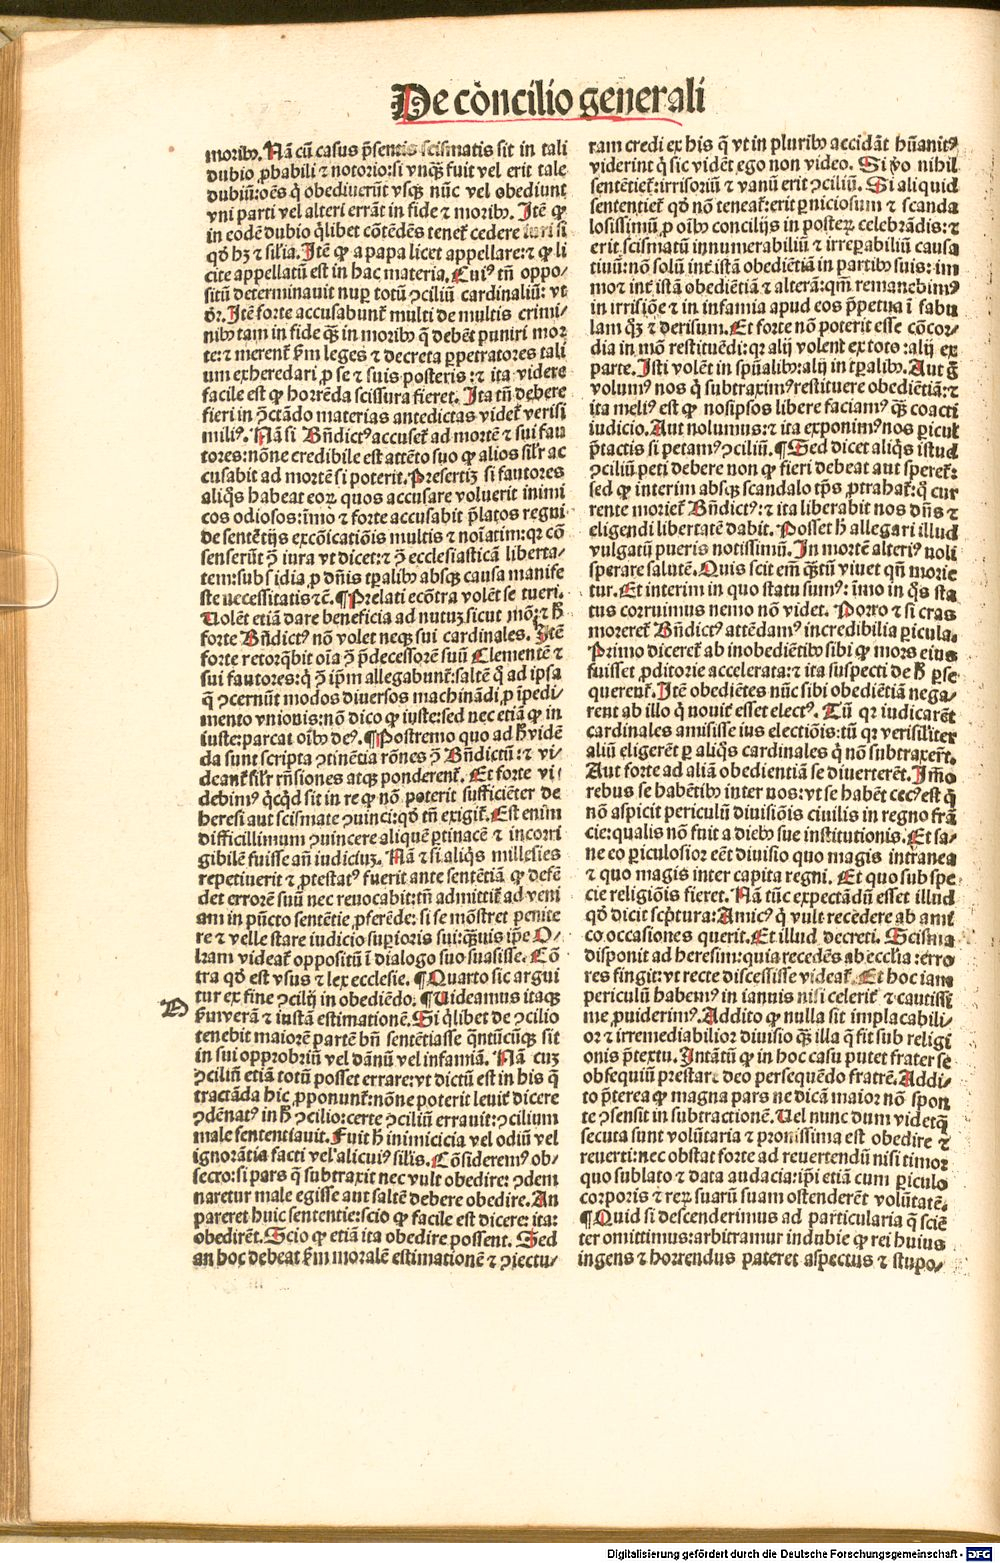 De cōncilio generali
moribꝰ. Nā cū casus p̄sentis scismatis sit in tali
dubio ꝓbabili ⁊ notorio: si vnqȝ fuit vel erit tale
dubiū: oēs q̇ obediuerūt vsqȝ nūc vel obediunt
vni parti vel alteri errāt in fide ⁊ moribꝰ. Itē ꝙ
in eodē dubio q̇libet cōtēdēs tenet᷑ cedere iuri si
qd̄ hȝ ⁊ sil̓ia. Itē ꝙ a papa licet appellare: ⁊ ꝙ li
cite appellatū est in hac materia. Cuiꝰ tn̄ oppo⸗
sitū determinauit nuꝑ totū ꝯciliū cardinaliū: vt
dr̄. Itē forte accusabunt᷑ multi de multis crimi⸗
nibꝰ tam in fide qȝ̄ in moribꝰ q̄ debēt puniri mor
te: ⁊ merent᷑ ẜm leges ⁊ decreta ꝑpetratores tali
um exheredari ꝓ se ⁊ suis posteris: ⁊ ita videre
facile est ꝙ horrēda scissura fieret. Ita tn̄ debere
fieri in ꝑctādo materias antedictas videt᷑ verisi
miliꝰ. Nā si Bn̄dictꝰ accuset᷑ ad mortē ⁊ sui fau
tores: nōne credibile est attēto suo ꝙ alios sil̓r ac
cusabit ad mortē si poterit. Presertiȝ si fautores
aliq̇s habeat eoꝝ quos accusare voluerit inimi
cos odiosos: īmo ⁊ forte accusabit p̄latos regni
de sentētijs excōicatiōis multis ⁊ noīatim: qꝛ cō
senserūt ꝯ̄ iura vt dicet: ⁊ ꝯ̄ ecclesiasticā liberta⸗
tem: subsidia ꝓ dn̄is tꝑalibꝰ absqȝ causa manife
ste necessitatis ⁊c̄. ¶ Prelati ecōtra volēt se tueri.
Nolēt etiā dare beneficia ad nutuȝ sicut mō: ⁊ h̄
forte Bn̄dictꝰ nō volet neqȝ sui cardinales. Itē
forte retorq̄bit oīa ꝯ̄ p̄decessorē suū Clementē ⁊
sui fautores: q̇ ꝯ̄ ip̄m allegabunt᷑: saltē q̇ ad ipsa
q̄ ꝯcernūt modos diuersos machinādi ꝓ īpedi⸗
mento vnionis: nō dico ꝙ iuste: sed nec etiā ꝙ in
iuste: parcat oībꝰ deꝰ. ¶ Postremo quo ad h̄ vidē
da sunt scripta ꝯtinētia rōnes ꝯ̄ Bn̄dictū: ⁊ vi⸗
deant᷑ sil̓r rn̄siones atqȝ ponderent᷑. Et forte vi⸗
debimꝰ q̇cq̇d sit in re ꝙ nō poterit sufficiēter de
heresi aut scismate ꝯuinci: qd̄ tn̄ exigit᷑. Est enim
difficillimum ꝯuincere aliquē ꝑtinacē ⁊ incorri
gibilē fuisse an̄ iudiciuȝ. Nā ⁊ si aliq̇s millesies
repetiuerit ⁊ ꝓtestatꝰ fuerit ante sentētiā ꝙ defē
det errorē suū nec reuocabit: tn̄ admittit᷑ ad veni
am in pūcto sentētie ꝓferēde: si se mōstret penite
re ⁊ velle stare iudicio suꝑioris sui: qȝ̄uis ip̄e O⸗
kam videat᷑ oppositū ī dialogo suo suasisse. Cō
tra qd̄ est vsus ⁊ lex ecclesie. ¶ Quarto sic argui
tur ex fine ꝯcilij in obediēdo. ¶ Uideamus itaqȝ
D
ẜm verā ⁊ iustā estimationē. Si q̇libet de ꝯcilio
tenebit maiorē partē bn̄ sentētiasse qn̄tūcūqȝ sit
in sui opprobriū vel dānū vel infamiā. Nā cuȝ
ꝯciliū etiā totū posset errare: vt dictū est in his q̄
tractāda hic ꝓponunt᷑: nōne poterit leuit᷑ dicere
ꝯdēnatꝰ in h̄ ꝯcilio: certe ꝯciliū errauit: ꝯcilium
male sententiauit. Fuit h̄ inimicicia vel odiū vel
ignorātia facti vel alicuiꝰ sil̓is. Cōsideremꝰ ob⸗
secro: si pars q̄ subtraxit nec vult obedire: ꝯdem
naretur male egisse aut saltē debere obedire. An
pareret huic sententie: scio ꝙ facile est dicere: ita:
obedirēt. Scio ꝙ etiā ita obedire possent. Sed
an hoc debeat ẜm moralē estimationē ⁊ ꝯiectu⸗
ram credi ex his q̄ vt in pluribꝰ accidāt hūanitꝰ
viderint q̇ sic vidēt ego non video. Si ꝟo nihil
sentētiet᷑: irrisoriū ⁊ vanū erit ꝯciliū. Si aliquid
sententiet᷑ qd̄ nō teneat᷑: erit ꝑniciosum ⁊ scanda
losissimū ꝓ oībꝰ concilijs in posteꝝ celebrādis: ⁊
erit scismatū innumerabiliū ⁊ irreꝑabiliū causa
tiuū: nō solū int᷑ istā obediētiā in partibꝰ suis: im
mo ⁊ int᷑ istā obediētiā ⁊ alterā: qm̄ remanebimꝰ
in irrisiōe ⁊ in infamia apud eos ꝑpetua ī fabu
lam qȝ ⁊ derisum. Et forte nō poterit esse cōcor⸗
dia in mō restituēdi: qꝛ alij volent ex toto: alij ex
parte. Isti volēt in spūalibꝰ: alij in tꝑalibꝰ. Aut g̊
volumꝰ nos q̇ subtraximꝰ restituere obediētiā: ⁊
ita meliꝰ est ꝙ nosipsos libere faciamꝰ qȝ̄ coacti
iudicio. Aut nolumus: ⁊ ita exponimꝰ nos ꝑicul
p̄tactis si petamꝰ ꝯciliū. ¶ Sed dicet aliq̇s istud
ꝯciliū peti debere non ꝙ fieri debeat aut speret᷑:
sed ꝙ interim absqȝ scandalo tp̄s ꝓtrahat᷑: q̇ cur
rente moriet᷑ Bn̄dictꝰ: ⁊ ita liberabit nos dn̄s ⁊
eligendi libertatē dabit. Posset h̄ allegari illud
vulgatū pueris notissimū. In mortē alteriꝰ noli
sperare salutē. Quis scit em̄ qȝ̄tū viuet qn̄ morie
tur. Et interim in quo statu sumꝰ: īmo in q̇s sta
tus corruimus nemo nō videt. Porro ⁊ si cras
moreret᷑ Bn̄dictꝰ attēdamꝰ incredibilia ꝑicula.
Primo diceret᷑ ab inobediētibꝰ sibi ꝙ mors eius
fuisset ꝓditorie accelerata: ⁊ ita suspecti de h̄ ꝑse
querent᷑. Itē obediētes nūc sibi obediētiā nega⸗
rent ab illo q̇ nouit᷑ esset electꝰ. Tū qꝛ iudicarēt
cardinales amisisse ius electiōis: tū qꝛ verisiliter
aliū eligerēt ꝑ aliq̇s cardinales q̇ nō subtraxer̄t.
Aut forte ad aliā obedientiā se diuerterēt. Im̄o
rebus se habētibꝰ inter nos: vt se habēt cecꝰ est q̇
nō aspicit periculū diuisiōis ciuilis in regno frā
cie: qualis nō fuit a diebꝰ sue institutionis. Et sa⸗
ne eo ꝑiculosior eēt diuisio quo magis intranea
⁊ quo magis inter capita regni. Et quo sub spe
cie religiōis fieret. Nā tūc expectādū esset illud
qd̄ dicit scp̄tura: Amicꝰ q̇ vult recedere ab ami
co occasiones querit. Et illud decreti. Scisma
disponit ad heresim: quia recedēs ab ecclia: erro
res fingit: vt recte discessisse videat᷑. Et hoc iam
periculū habemꝰ in ianuis nisi celerit᷑ ⁊ cautissi
me ꝓuiderimꝰ. Addito ꝙ nulla sit implacabili⸗
or ⁊ irremediabilior diuisio qȝ̄ illa q̄ fit sub religi
onis p̄textu. Intātū ꝙ in hoc casu putet frater se
obsequiū prestare deo persequēdo fratrē. Addi⸗
to p̄terea ꝙ magna pars ne dicā maior nō spon
te ꝯsensit in subtractionē. Uel nunc dum videtqȝ
secuta sunt volūtaria ⁊ pronissima est obedire ⁊
reuerti: nec obstat forte ad reuertendū nisi timor
quo sublato ⁊ data audacia: ip̄i etiā cum ꝑiculo
corporis ⁊ reꝝ suarū suam ostenderēt volūtatē.
¶ Quid si descenderimus ad particularia q̄ sciē
ter omittimus: arbitramur indubie ꝙ rei huius
ingens ⁊ horrendus pateret aspectus ⁊ stupo⸗
Digitalisierung gefördert durch die Deutsche Forschungsgemeinschaft - DFG